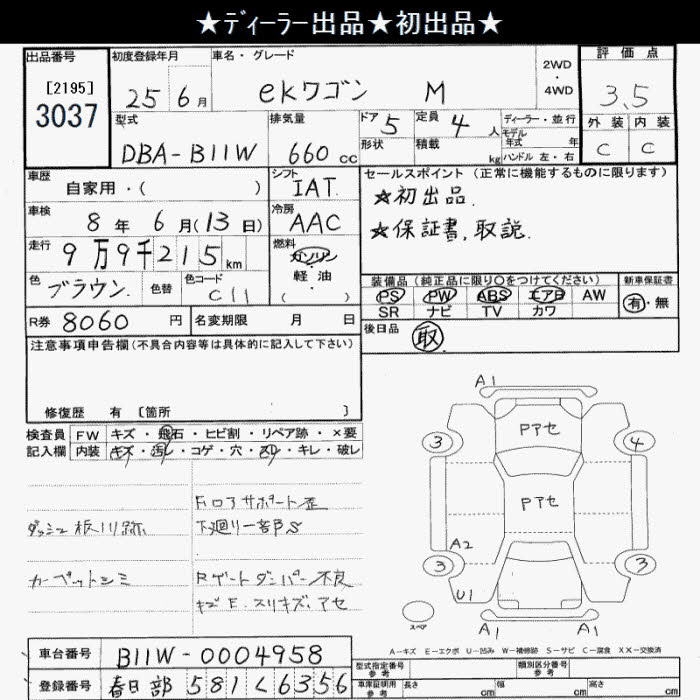 ★ディーラー出品★初出品★
出品番号
[2195]
3037
初度登録年月
25 6月
車名・グレード
ekワゴン M
2WD
・
4WD
評価点
3.5
外装 内装
C C
型式
DBA-B11W
排気量
660 cc
ドア 5
形状
定員 4 人
積載 kg
ディーラー・並行
モデル年式 年
ハンドル 左・右
車歴
自家用・( )
シフト
IAT
冷房
AAC
燃料
ガソリン
軽・油
( )
車検
8年 6月(13日)
走行
9万9千215 km
色
ブラウン
色替
色コード
C11
R券 8060円
名変期限 月 日
セールスポイント(正常に機能するものに限ります)
☆初出品.
☆保証書,取説.
装備品(純正品に限り〇をつけてください)
PS PW ABS エアB AW
SR ナビ TV カワ
新車保証書
有・無
後日品 取
注意事項申告欄(不具合内容等は具体的に記入して下さい)
修復歴 有[箇所 ]
検査員
記入欄
FW キズ・飛石・ヒビ割・リペア跡・×要
内装 キズ・汚レ・コゲ・穴・スリ・キレ・破レ
F.ロアサポート歪
ダッシュ板川跡
下廻り一部S
カーペットシミ
Rゲートダンパー不良
キズE.スリキズ.アセ
A1
Pアセ
3 4
Pアセ
A2
3 3
U1
スペア
A1 A1
A-キズ E-エクボ U-凹み W-補修跡 S-サビ C-腐食 XX-交換済
車台番号 B11W-0004958
登録番号 春日部 581 く 6356
型式指定番号
参考
類別区分番号
参考
車庫証明用
参考
長さ cm 幅 cm 高さ cm